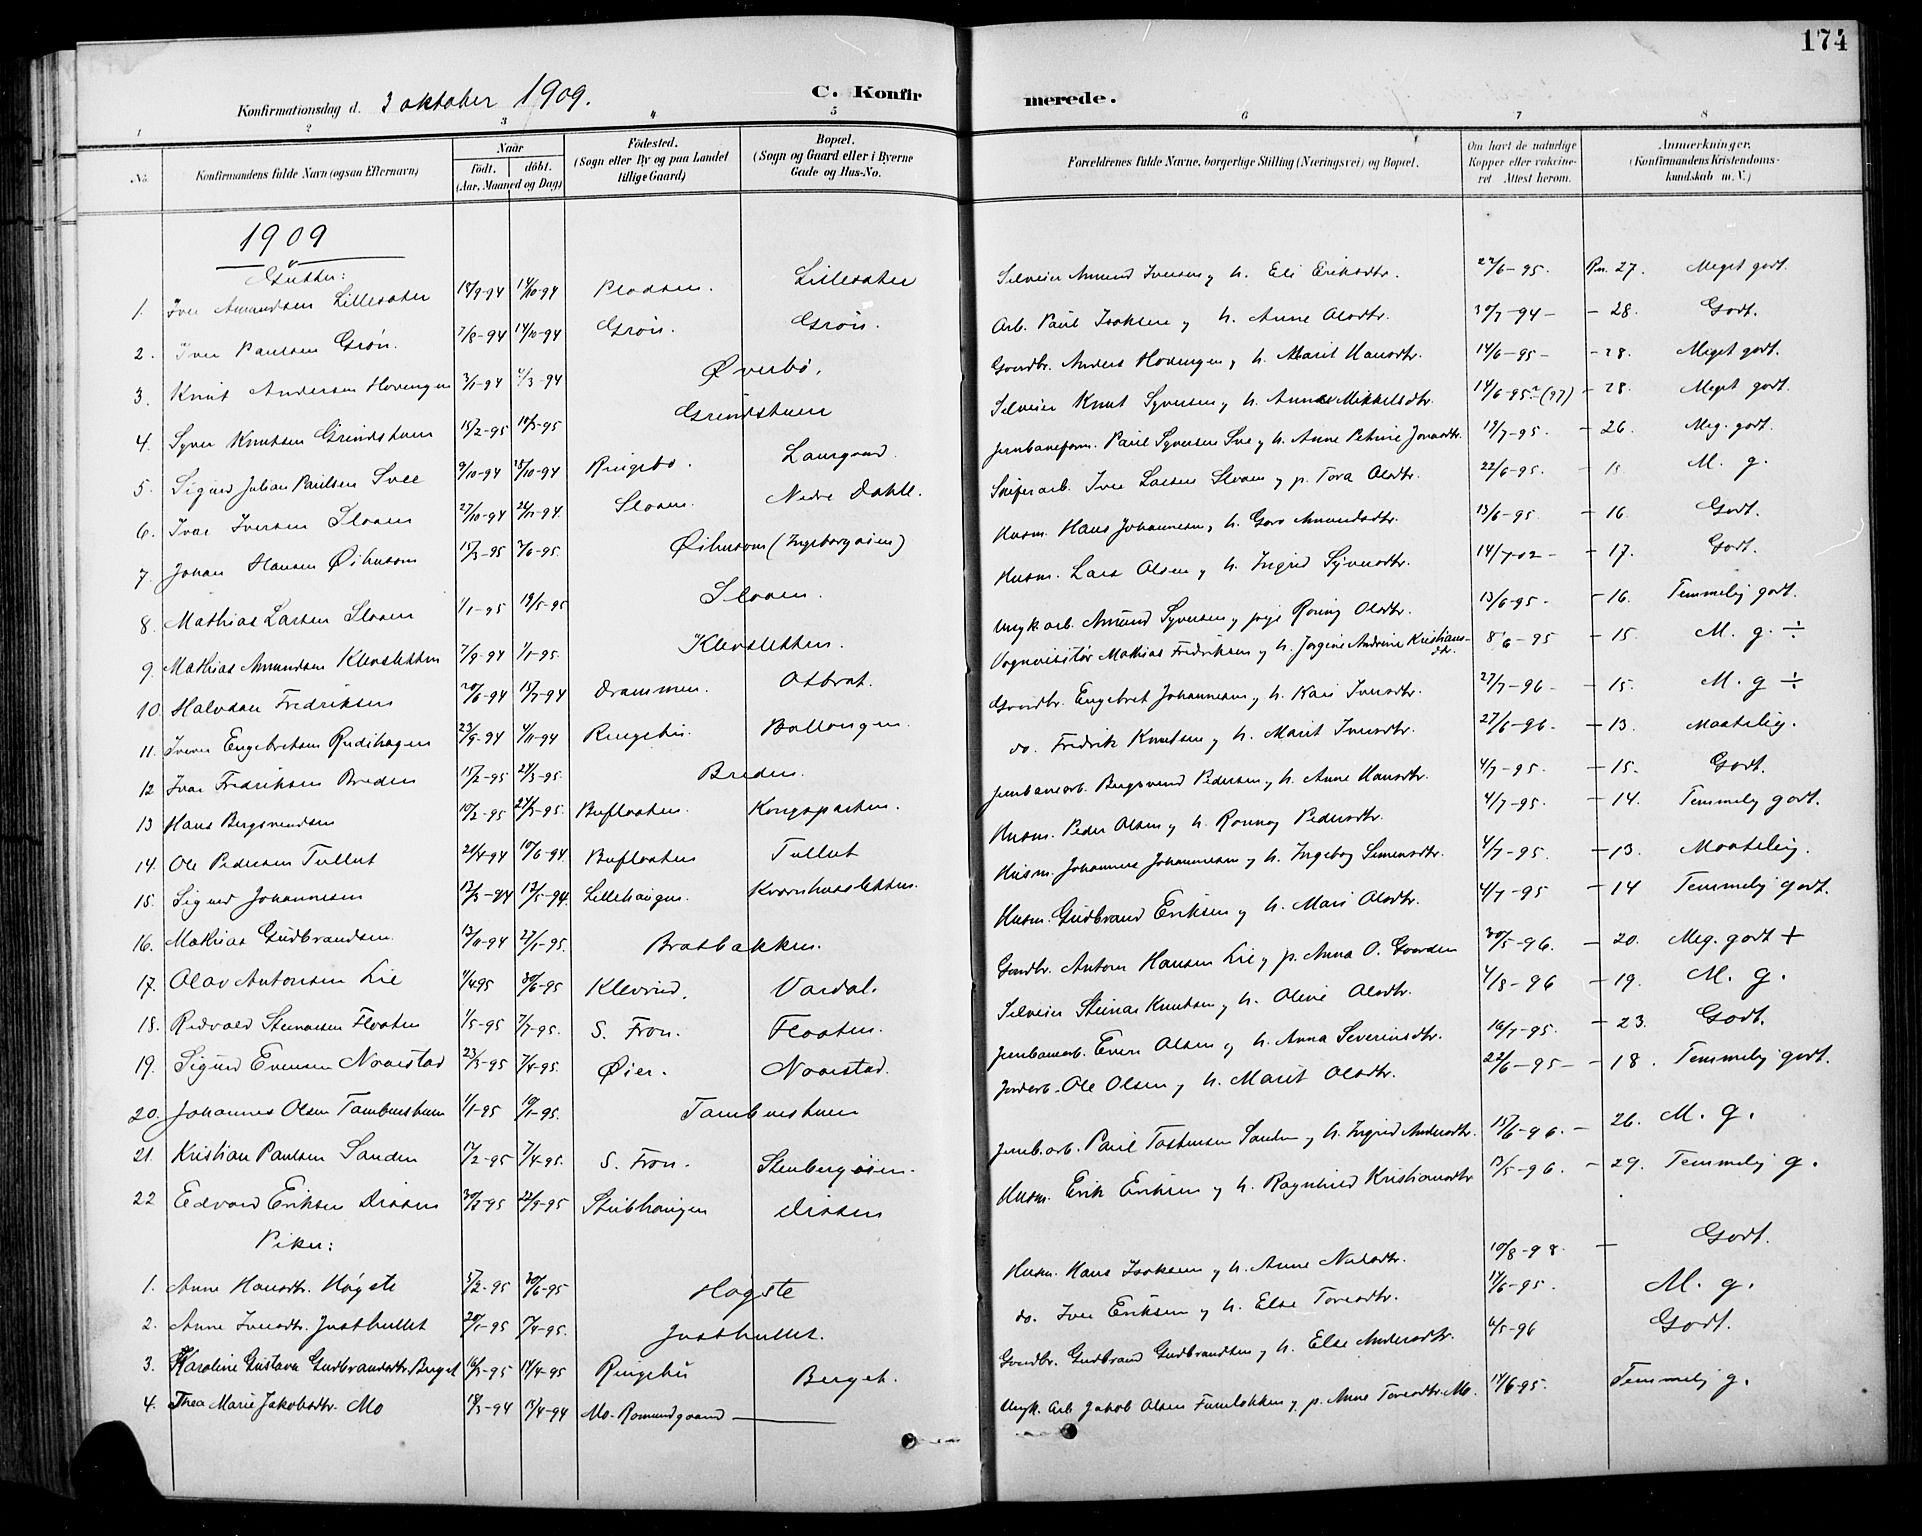 174
Konfirmationsdag d. 3 oktober 1909. C. Konfir merede.
1 2 3 4 5 6 7 8
No. Konfirmandens fulde Navn (ogsaa Efternavn) Naar født. døbt. (Aar, Maaned og Dag) Fødested. (Sogn eller By og paa Landet tillige Gaard) Bopæl. (Sogn og Gaard eller i Byerne Gade og Hus-No. Forældrenes fulde Navne, borgerlige Stilling (Næringsvei) og Bopæl. Om havt de naturlige Kopper eller vakcineret. Attest herom. Anmærkninger. (Konfirmandens Kristendomskundskab m. V.)
1909
Gutter:
1. Iver Amundsen Lillesæter 14/10-94 Lillesæter Selveier Amund Iversen, h. Eli Eriksdtr. 22/6-95. Rn. 27. Meget godt.
2. Iver Paulsen Grøn. 7/8-94 14/10-94 Grøn. Grøn. Arb. Paul Isaksen y h. Anne Olsdtr. 30/7-94- -28. Godt.
3. Knut Andersen Hovengen 4/3-94 Øverbø. Gaardbr. Anders Hovengen, h. Marit Hansdtr. 14/6-95- -28. Meget godt.
4. Syver Knutsen Grindstuen 15/2-95 Grindstuen Selveier Knut Syversen, h. Anne Mikkelsdtr. 14/6-95 (97) -28. Meget godt.
5. Sigurd Julian Paulsen Svee 9/10-94 Ringebo. Laurgaard. Jernbaneform. Paul Syversen Sve y h. Anne Petrine Jonasdtr. 19/7-95. -26. Meg. godt.
6. Ivar Iversen Sloaen 27/10-94 Sloaen. Nedre Dahle. Skiferarb. Iver Larsen Sloaen y p. Tora Olsdtr. 22/6-95. M. g.
7. Johan Hansen Øihusom 15/3-95 3/6-95 Øihusom (Ingeborgøien) Husm. Hans Johannesen, h. Goro Amundsdtr. 13/6-95. -16. Godt.
8. Mathias Larsen Sloaen 1/1-95 19/5-95 Sloaen. Husm. Lars Olsen y h. Ingrid Syversdtr. 14/7-02- -17. Godt.
9. Mathias Amundsen Klevsletten 7/9-94 1/1-95. Klevsletten. Ungk. arb. Amund Syversen y pige Rønnog Olsdtr. 13/6-95- -16. Temmelig godt.
10. Halvdan Fredriksen 20/6-94 15/7-94 Drammen. Osbrot. Vognvisitør Mathias Fredriksen y h. Jorgine Andrine Kristiansdtr. 8/6-95 -15. M. g. ÷
11. Iver Engebretsen Rudihagen 23/9-94 4/11-94 Ringebu. Ballangen. Gaardbr. Engebret Johannesen y h. Kari Iversdtr. 27/7-96- -15. M. g ÷
12 Ivar Fredriksen Breden 15/2-95 24/3-95. Breden. do. Fredrik Knutsen y h. Marit Iversdtr. 27/6-96- -13. Maatelig.
13 Hans Bergsvendsen 10/2-95 Bufloaten. Kongsparten. Jernbanearb. Bergsvend Pedersen, h. Anne Hansdtr. 4/7-95. -15. Godt.
14. Ole Pedersen Tullut 21/4-94 10/6-94. Bufloaten Tullut Husm. Peder Olsen y h. Rønnog Pedersdtr. 4/7-95. -14. Temmelig godt.
15. Sigurd Johannesen 12/5-94. Lillehaugen. Kvernhussletten. Husm. Johannes Johannesen y h. Ingeborg Simensdtr. 4/7-95. -13. Maatelig.
16. Mathias Gudbrandsen. 12/11-94 27/1-95. Bratbakken. Husm. Gudbrand Eriksen y h. Mari Olsdtr. 4/7-95 -14 Temmelig godt.
17. Olav Antonsen Lie 1/4 95 30/6-95 Klevrud. Vardal. Gaardbr. Anton Hansen Lie y p. Anna O. Gaarden 30/5-96. -20. Meg. godt +
18. Redvald Steinarsen Floaten 1/5-95 7/7-95. S. Fron. Floaten. Selveier Steinar Knutsen y h. Oline Olsdtr. 4/8-96 -19. M. g.
19. Sigurd Evensen Noverstad 23/3-95 7/4-95. Øier. Noverstad. Jernbanearb. Even Olsen y h. Anna Severinsdtr. 16/7-95. -23. Godt.
20. Johannes Olsen Tamburstuen 1/1-95 Tamburstuen Jordarb. Ole Olsen y h. Marit Olsdtr. 22/6-95- -18. Temmelig godt.
21. Kristian Paulsen Sanden 17/2-95 7/4-95. S. Fron. Stenbergøien. Jernb.arb. Paul Tostensen Sanden y h. Ingrid Andersdtr. 15/6-96.- 26. M. g.
22 Edvard Eriksen Dissen 22/9-95 Stubhaugen Dissen Husm. Erik Eriksen y h. Ragnhild Kristiansdtr 13/5-96. -29. Temmelig g.
Piker:
1. Anne Hansdtr. Høgste 5/2-95 30/6-95 Høgste Husm. Hans Isaksen y h. Anne Nilsdtr. 10/8-98. - Godt.
2. Anne Iversdtr. Justhullet 20/1-95 7/4-95. Justhullet. do. Iver Eriksen y h. Else Toresdtr. 17/6-95. M. g.
3. Karoline Gustava Gudbrandsdtr. Berget 16/3-95 14/4-95 Ringebu Berget. Gaardbr. Gudbrand Gudbrandsen y h. Else Andersdtr. 6/5-96 Godt.
4. Thea Marie Jakobsdtr. Mo 18/3-94 15/4-94 Mo-Romundgaard — Ungk. Arb Jakob Olsen Furulokken y p. Anne Toresdtr. Mo. 14/6-95. Temmelig g.